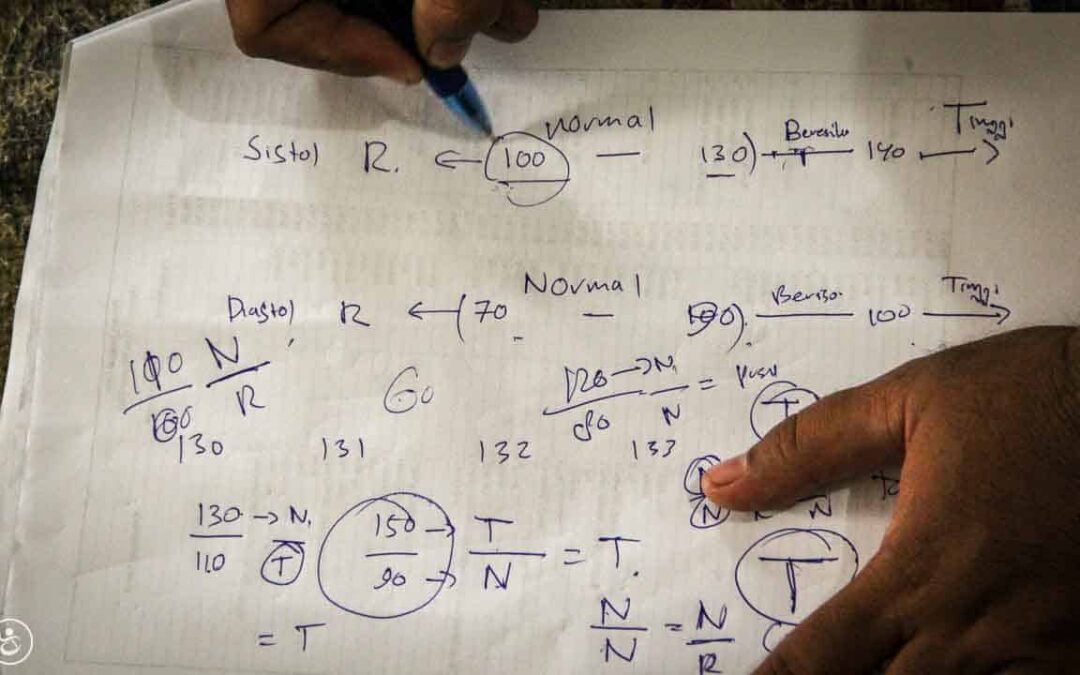 Sistol R. ← 100 — normal 130) Beresiko 140 → Tinggi
Diastol R ← (70 — Normal 90). Beriso. 100 → Tinggi
100 N
60 R
60
120 → N
80 N =
130 131 132 133
130 → N.
110 T
= T
150 → T
90 → N = T.
N N
N = R
T
N
N
T